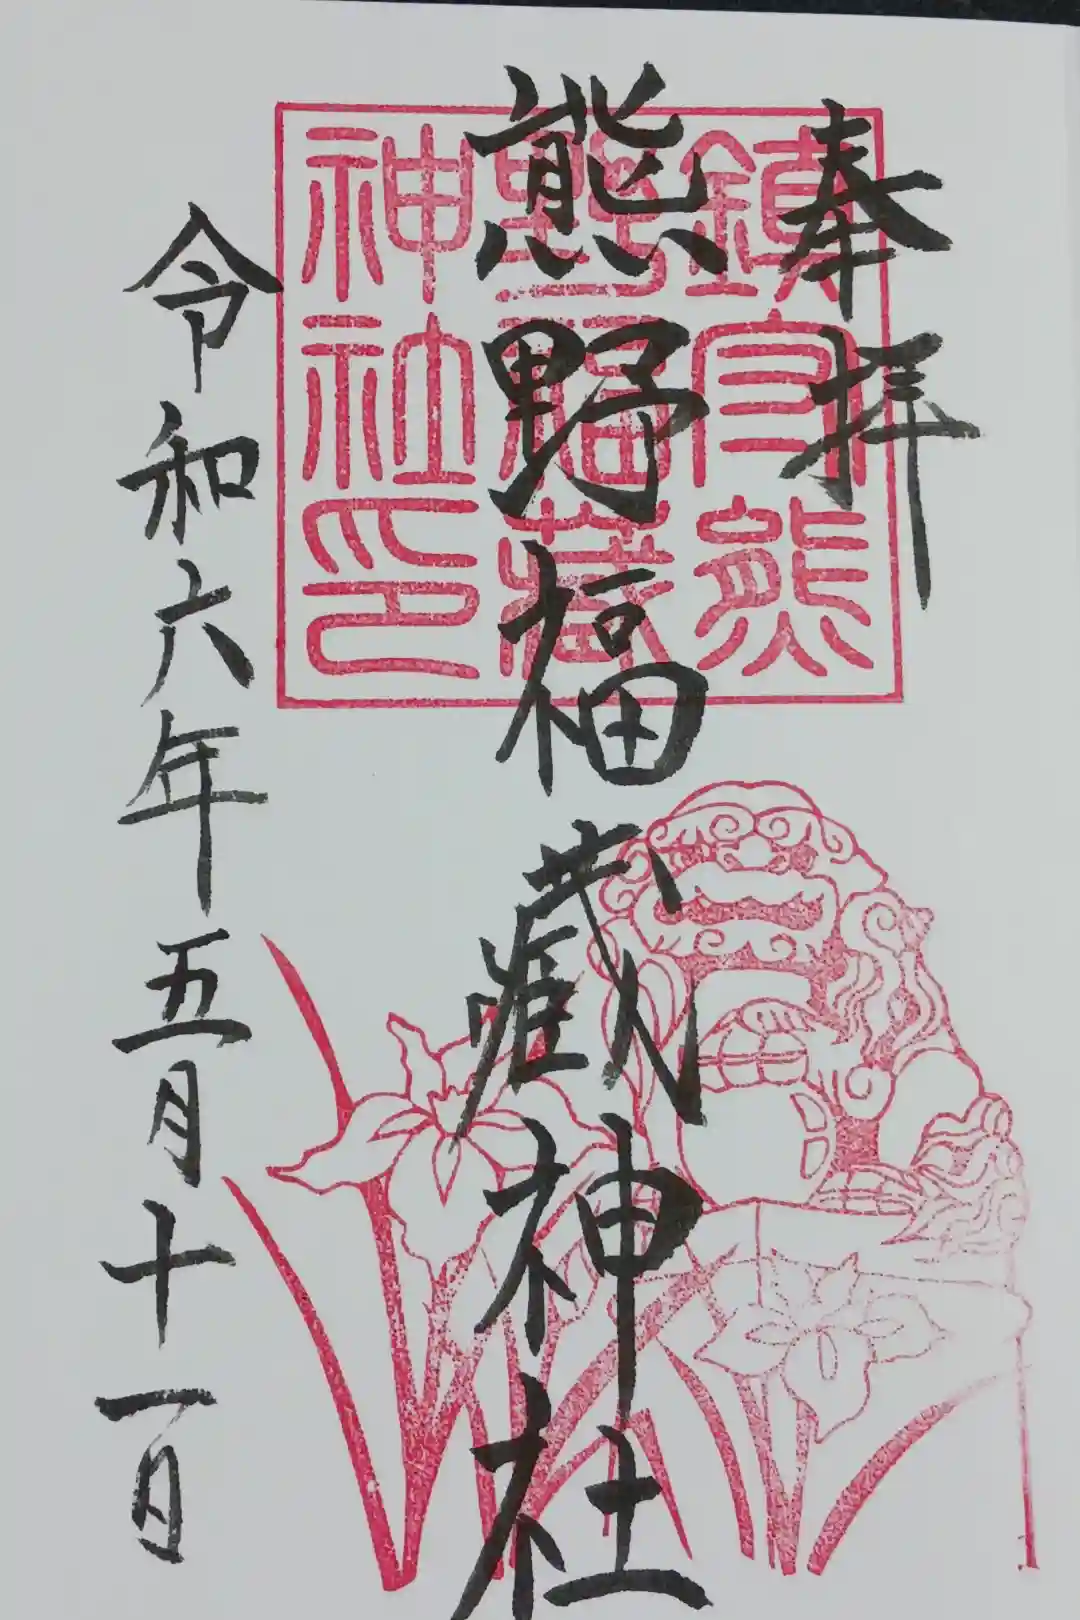 奉拝
熊野福蔵神社
令和六年五月十一日
鎮守熊
野福蔵
神社印